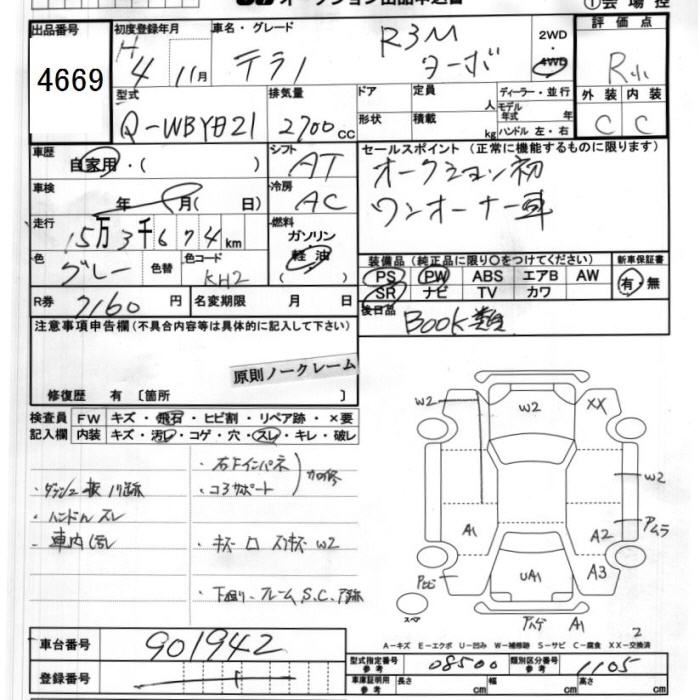 オークション出品申込書
①会場控
出品番号
4669
初度登録年月
H 4 11月
車名・グレード
テラノ R3M
ターボ
2WD
4WD
評価点
R
外装 内装
C C
型式
Q-WBYD21
排気量
2700cc
ドア
形状
定員 人
積載 kg
ディーラー・並行
モデル年式 年
ハンドル 左・右
車歴
自家用・( )
シフト
AT
セールスポイント (正常に機能するものに限ります)
オークション初
ワンオーナー車
車検
年 月( 日)
冷房
AC
走行
15万3千674km
燃料
ガソリン
軽油
( )
色
グレー
色替
色コード
KH2
装備品 (純正品に限り○をつけてください)
新車保証書
PS PW ABS エアB AW
SR ナビ TV カワ
有・無
R券
7160円
名変期限 月 日
後日品
BOOK類
注意事項申告欄(不具合内容等は具体的に記入して下さい)
原則ノークレーム
修復歴 有 〔箇所 〕
検査員 FW キズ・飛石・ヒビ割・リペア跡・×要
記入欄 内装 キズ・汚レ・コゲ・穴・スレ・キレ・破レ
・ハンドルスレ
・車内汚レ
・右Fインパネ
・コアサポート
・キズ
W2
・下廻り、フレームS.C.
W2
W2
XX
W2
A1
A2
アムラ
A3
UA1
スペア
A1
2
A-キズ E-エクボ U-凹み W-補修跡 S-サビ C-腐食 XX-交換済
車台番号
901942
登録番号
型式指定番号
参考
08500
類別区分番号
参考
1105
車庫証明用
参考
長さ cm
幅 cm
高さ cm